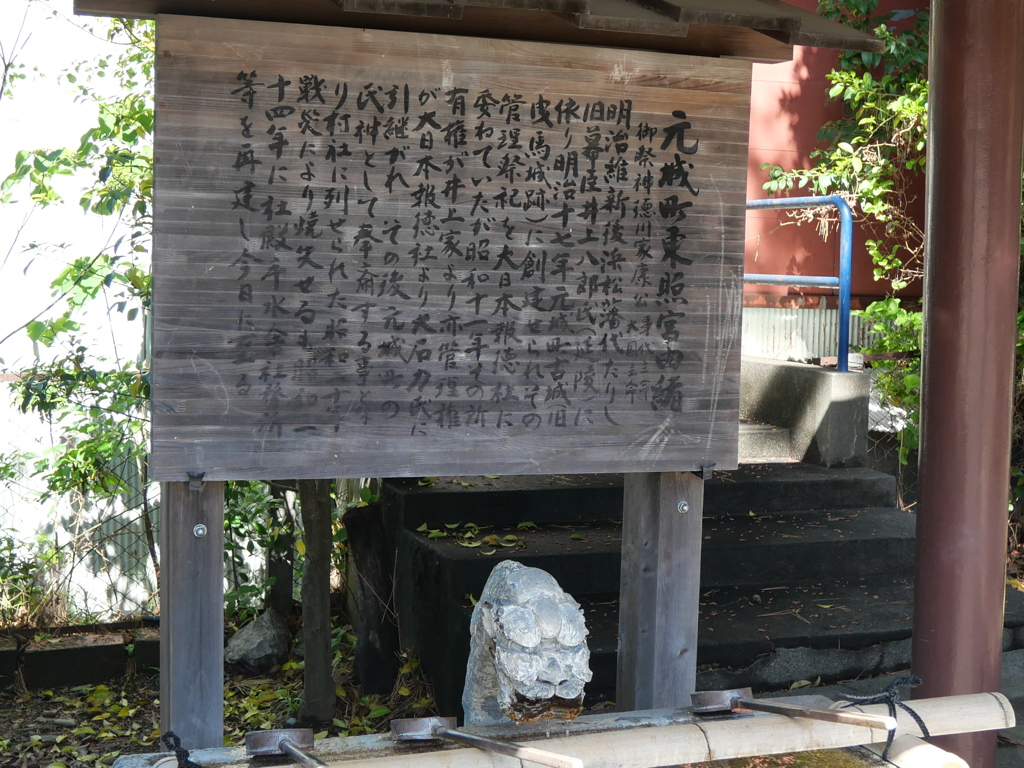 元城町東照宮由緒
御祭神徳川家康公 事代主命 大国主命
明治維新後浜松藩代たりし
旧幕臣井上八郎氏(延陵)に
依り明治十七年元城町古城旧
曳馬城跡)に創建せられその
管理祭祀を大日本報徳社に
委ねていたが昭和十一年その所
有権が井上家より亦管理権
が大日本報徳社より大石力氏に
引継がれその後元城町の
氏神として奉斎する事とな
り村社に列せられた昭和二十年
戦災により焼失せるも昭和三
十四年に社殿手水舎社務所
等を再建し今日に至る